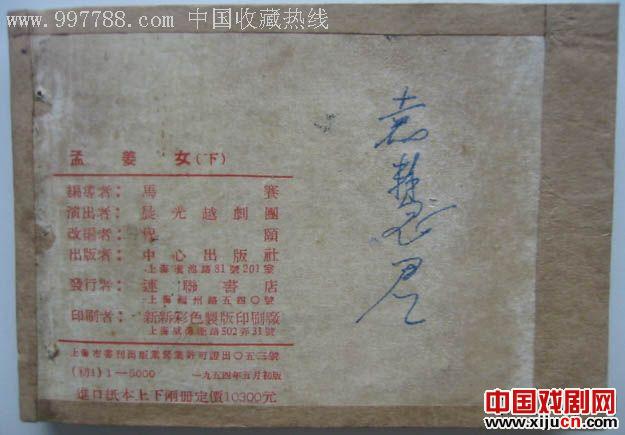 www.997788.com 中国收藏热线
孟姜女(下)
編導者: 馬賽
演出者: 晨光越劇團
改編者: 倪頤
出版者: 中心出版社
上海 路81號201室
發行者: 連聯書店
上海福州路五四〇號
印刷者: 新新彩色製版印刷廠
上海威海衛路502弄31號
上海市書刊出版業營業許可證出〇五三號
(初1) 1—5000 一九五四年五月初版
進口紙本上下兩冊定價10300元
袁 君
中国戏剧网
www.xijucn.com